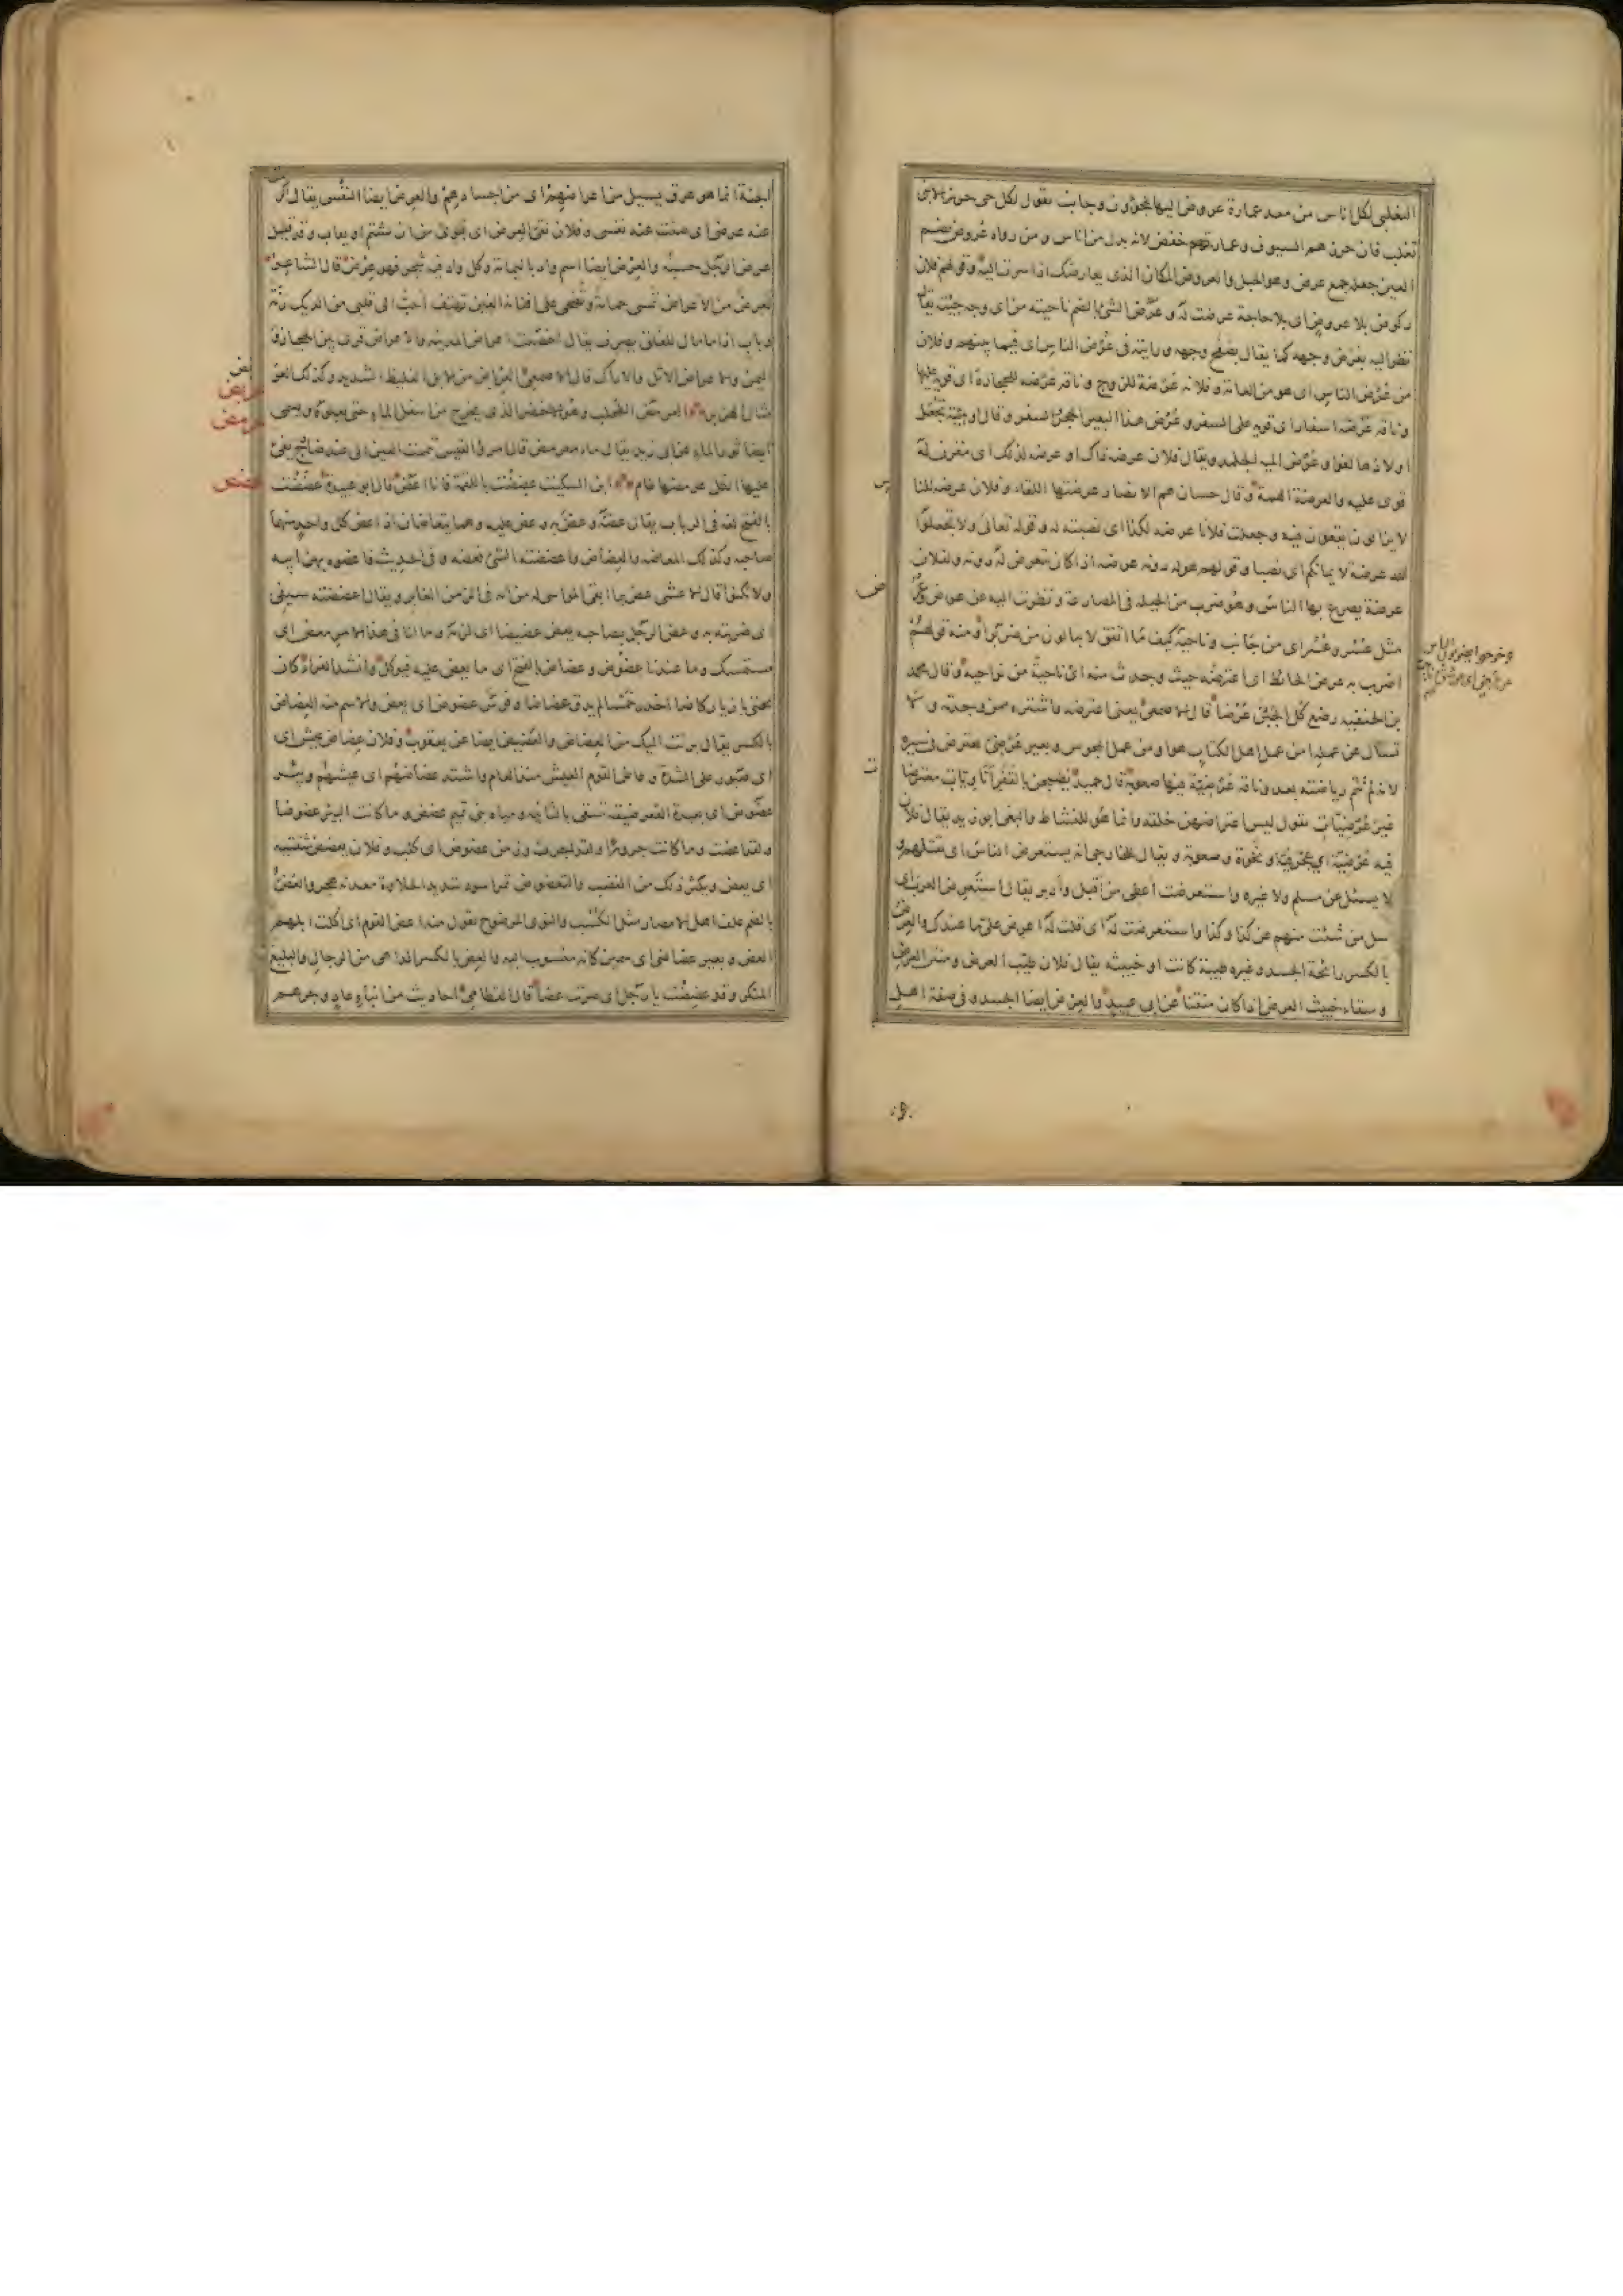 التغلبي لكل اناس من معد عمارة عروض اليها يلجؤون وجانب يقول لكل حي حرز الا بني
تغلب فان حرزهم السيوف وعمارتهم خفض لانه بدل من اناس ومن رواه عروض بضم
العين جعله جمع عرض وهو الجبل والعروض المكان الذي يعارضك اذا سرت اليه وقولهم فلان
ركوض بلا عروض اي بلا حاجة عرضت له وعُرْض الشئ بالضم ناحيته من اي وجه جئته يقال
نظر اليه بعُرض وجهه كما يقال بصفح وجهه ورايته في عُرْض الناس اي فيما بينهم وفلان
من عُرْض الناس اي هو من العامة وفلانة عُرْضة للزوج وناقة عُرْضة للحجارة اي قوية عليها
وناقة عُرْضة اسفار اي قوية على السفر وعُرْض هذا البعير السفر والحجر وقال او مئة تجعل
اولادها لغوا وعُرْض المئة الجلمد ويقال فلان عرضة ذاك او عرضة لذلك اي مقرن له
قوي عليه والعرضة الهمة وقال حسان هم الانصار عرضتها اللقاء وفلان عرضة للناس
لا يزالون يقعون فيه وجعلت فلانا عرضة لكذا اي نصبته له وقوله تعالى ولا تجعلوا
الله عرضة لايمانكم اي نصبا وقولهم هو له دونه عرضة اذا كان يتعرض له دونه ولفلان
عرضة يصرع بها الناس وهو ضرب من الحيلة في المصارعة ونظرت اليه عن عرض وعُرُض
مثل عُسْر وعُسُر اي من جانب وناحية كيف ما اتفق لا يبالون من ضربوا ومنه قولهم
اضرب به عرض الحائط اي اعترضه حيث وجدت منه اي ناحية من نواحيه وقال محمد
بن الحنفية كُل الجبن عُرْضا قال الاصمعي يعني اعترضه واشتره ممن وجدته ولا
تسال عن عمله امن عمل اهل الكتاب هو او من عمل المجوس وبعير عُرْضي يعترض في سيره
لانه لم تتم رياضته بعد وناقة عُرْضية فيها صعوبة قال حميد يصبحن بالقفر اتاويات معترضات
غير عُرْضيات يقول ليس اعتراضهن خلقة وانما هو للنشاط والبغي ابو زيد يقال فلان
فيه عُرْضية اي عجرفية ونخوة وصعوبة ويقال للخارجي انه يستعرض الناس اي يقتلهم و
لا يسئل عن مسلم ولا غيره واستعرضت اعطي من اقبل وادبر يقال استعرض العرب اي
سل من شئت منهم عن كذا وكذا واستعرضته اي قلت له اعرض علي ما عندك والعرض
بالكسر رائحة الجسد وغيره طيبة كانت او خبيثة يقال فلان طيب العرض ومنتن العرض
وسقاء خبيث العرض اذا كان منتنا عن ابي عبيد والعرض ايضا الجسد وفي صفة اهل
وخرجوا يضربون الناس
عن
الجنة انما هو عرق يسيل من اعراضهم اي من اجسادهم والعرض ايضا النفس يقال اكرمت
عنه عرضي اي صنت عنه نفسي وفلان نقي العرض اي بريء من ان يشتم او يعاب وقد قيل
عرض الرجل حسبه والعرض ايضا اسم واد باليمامة وكل واد فيه شجر فهو عِرْض قال الشاعر
لعرض من الاعراض تمسي حمامه وتضحي على افنانه الغين تهتف احب الى قلبي من الديك رنة
وباب اذا ما مال للغلق يصرف يقال اخصبت اعراض المدينة والاعراض قرى بين الحجاز و
اليمن والاعراض الاثل والاراك قال الاصمعي العرباض من الابل الغليظ الشديد وكذلك العر
مثال الهزبر العرمض الطحلب وهو الاخضر الذي يخرج من اسفل الماء حتى يعلوه ويسمى
ايضا ثور الماء عن ابي زيد يقال ماء معرمض قال امرؤ القيس تيممت العين التي عند ضارج يفئ
عليها الظل عرمضها طام ابن السكيت عضضت باللقمة فانا اعض قال ابو عبيدة عضَضت
بالفتح لغة في الرباب يقال عضه وعض به وعض عليه وهما يتعاضان اذا عض كل واحد منهما
صاحبه وكذلك المعاضة والعضاض واعضضته الشئ فعضه وفي الحديث فاعضوه بهن ابيه
ولا تكنوا قال الاعشى عض بما ابقى المواسي له من امه في الزمن الغابر ويقال اعضضته سيفي
اي ضربته به وعض الرجل بصاحبه يعض عضيضا اي لزمه وما لنا في هذا الامر معض اي
مستمسك وما عندنا عضوض وعضاض بالفتح اي ما يعض عليه فيوكل وانشد الفراء كان
تحتي بازيا ركاضا اخدر خمسا لم يذق عضاضا وفرس عضوض اي يعض والاسم منه العضاض
بالكسر يقال برئت اليك من العضاض والعضيض ايضا عن يعقوب وفلان عضاض عيش اي
اي صبور على الشدة وعاض القوم العيش منذ العام واشتد عضاضهم اي عيشهم وبئر
عضوض اي بعيدة القعر ضيقة تستقى بالسانية ومياه بني تميم عضض وما كانت البئر عضوضا
ولقد اعضت وما كانت جرورا ولقد اجرت وزمن عضوض اي كلب وفلان يعضض شفتيه
اي يعض ويكثر ذلك من الغضب والتعضوض تمر اسود شديد الحلاوة معدنه هجر والعُضّ
بالضم علف اهل الامصار مثل الكسب والنوى المرضوخ تقول منه اعض القوم اي اكلت ابلهم
العض وبعير عضاضي اي سمين كانه منسوب اليه والعض بالكسر الداهي من الرجال والبليغ
المنكر وقد عضضت يا رجل اي صرت عضا قال القطامي احاديث من انباء عاد وجرهم